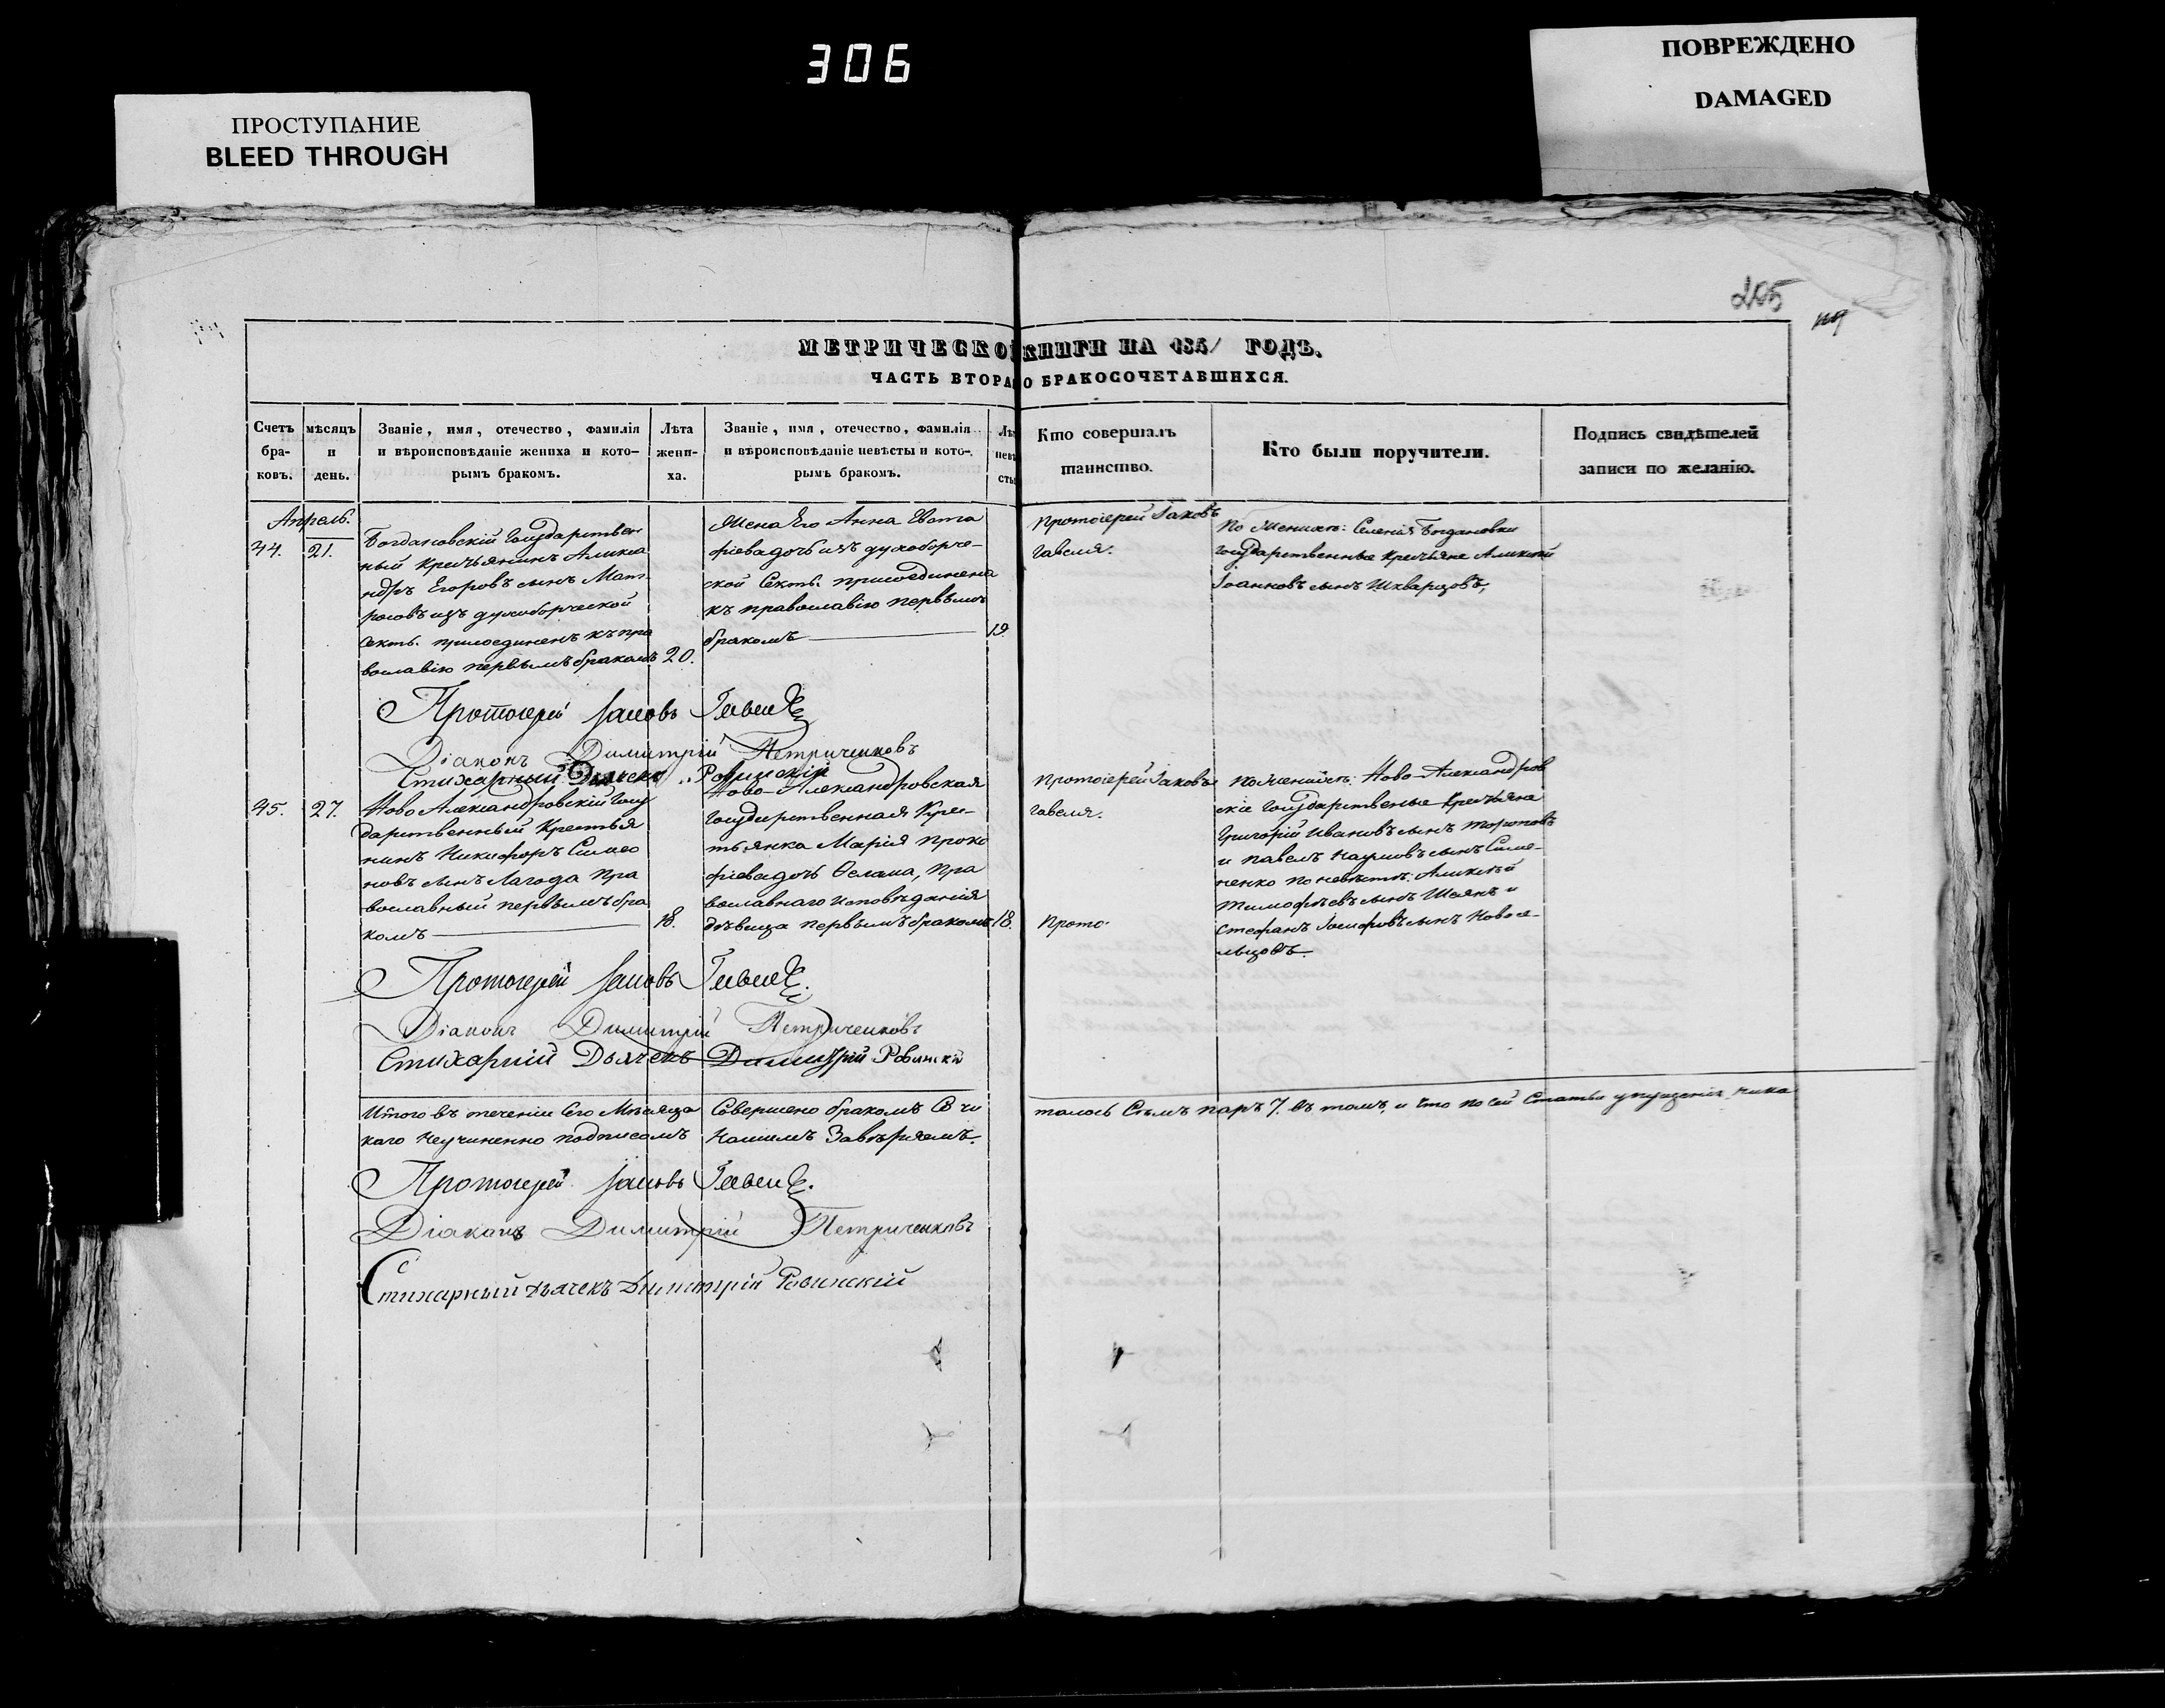 306
ПРОСТУПАНИЕ
BLEED THROUGH
ПОВРЕЖДЕНО
DAMAGED
205
МЕТРИЧЕСКО КНИГИ НА 185 ГОДЪ.
ЧАСТЬ ВТОРА О БРАКОСОЧЕТАВШИХСЯ.
Счетъ бра-ковъ.
мѣсяцъ и день.
Званіе, имя, отечество, фамилія
и вѣроисповѣданіе жениха и кото-
рымъ бракомъ.
Лѣта жени-ха.
Званіе, имя, отечество, фамилія
и вѣроисповѣданіе невѣсты и кото-
рымъ бракомъ.
Лѣ невѣ сты
Кто совершалъ
таинство.
Кто были поручители.
Подпись свидѣтелей
записи по желанію.
Апрель.
44. 21.
Богдановскій Государствен
ный Крестьянинъ Алекса
ндръ Егоровъ сынъ Мат
росовъ изъ духоборческой
Секты присоединенъ къ пра
вославію первымъ бракомъ 20.
Жена Его Анна Евста
фіева дочь изъ духоборче-
ской Секты присоединена
къ православію первымъ
бракомъ 19
Протоіерей Іаковъ
Гавеля.
По Женихѣ: Селенія Богдановки
Государственные Крестьяне Алексѣй
Іоанновъ сынъ Шкварцовъ,
Протоіерей Іаковъ Гавеля
Діаконъ Димитрій Петриченковъ
Стихарный Дьячекъ Ровинскій
45. 27.
Ново Александровскій Госу
дарственный Крестья
нинъ Никифоръ Симео
новъ сынъ Лагода Пра
вославный первымъ бра
комъ 18.
Ново-Александровская
Государственная Кре-
стьянка Марія Проко
фіева дочь Пра
вославнаго исповѣданія
дѣвица первымъ бракомъ 18.
Протоіерей Іаковъ
Гавеля.
Прото
По Женихѣ: Ново-Александров
скіе Государственые Крестьяне
Григорій Ивановъ сынъ Тороповъ
и Павелъ Наумовъ сынъ Симе-
ненко по невѣстѣ: Алексѣй
Тимофѣевъ сынъ и
Стефанъ Іосифовъ сынъ Новосе-
льцовъ.
Протоіерей Іаковъ Гавеля.
Діаконъ Димитрій Петриченковъ
Стихарній Дьячекъ Димитрій Ровинскій
Итого въ теченіи Сего Мѣсяца Совершено бракомъ Сочи
талось Сѣмъ паръ 7. въ томъ, и что по сей Статьи упущенія ника
каго неучиненно подписомъ Нашимъ Завѣряемъ.
Протоіерей Іаковъ Гавеля.
Діаконъ Димитрій Петриченковъ
Стихарный Дьячекъ Димитрій Ровинскій